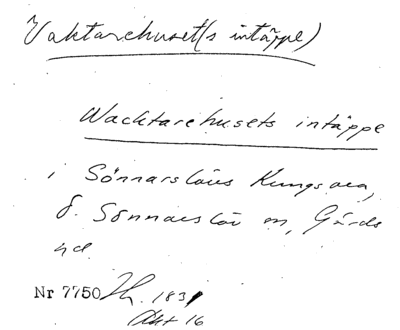 Vaktarehuset(s intäppe)
Wacktarehusets intäppe
i Sönnarslövs Kungsara,
d. Sönnarslöv sn, Gärds
hd.
Nr 7750 1831
Akt 16